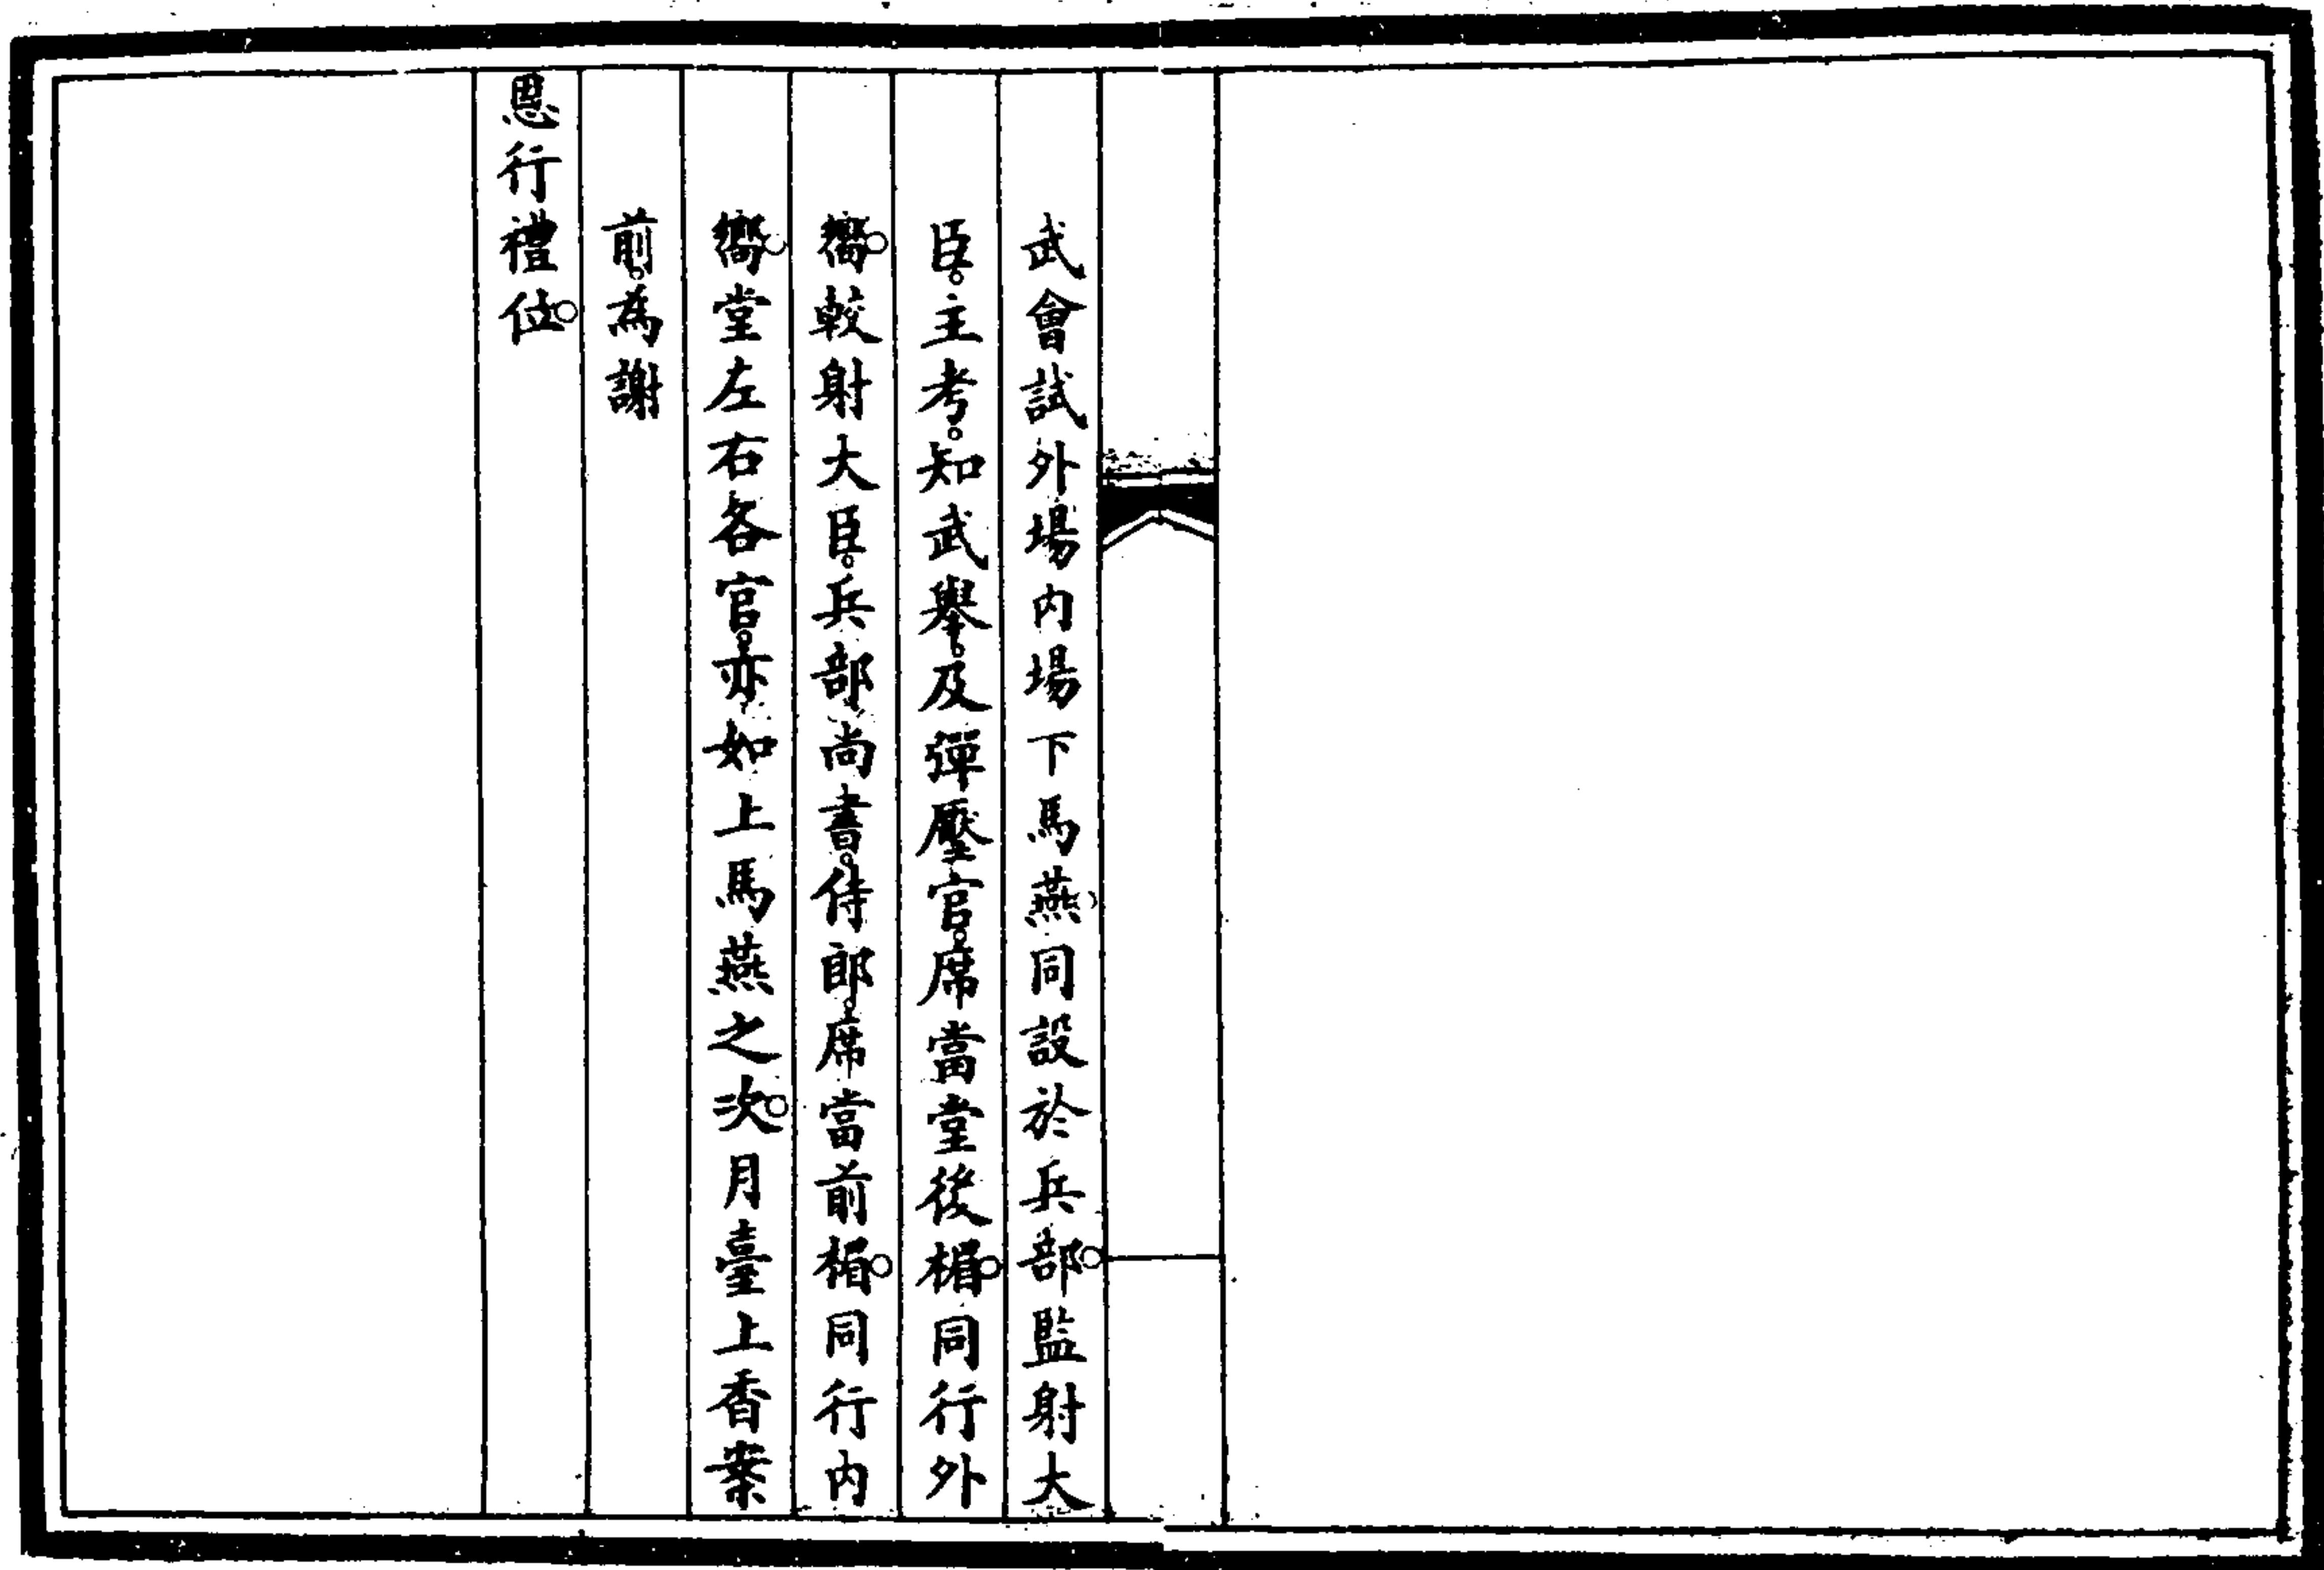 武會試外場内場下馬燕同設於兵部。監射大
臣。主考。知武舉。及彈壓官。席當堂後楣。同行外
嚮。較射大臣。兵部尚書。侍郎。席當前楣。同行内
嚮。堂左右各官。亦如上馬燕之次。月臺上香案
前。為謝
恩行禮位。